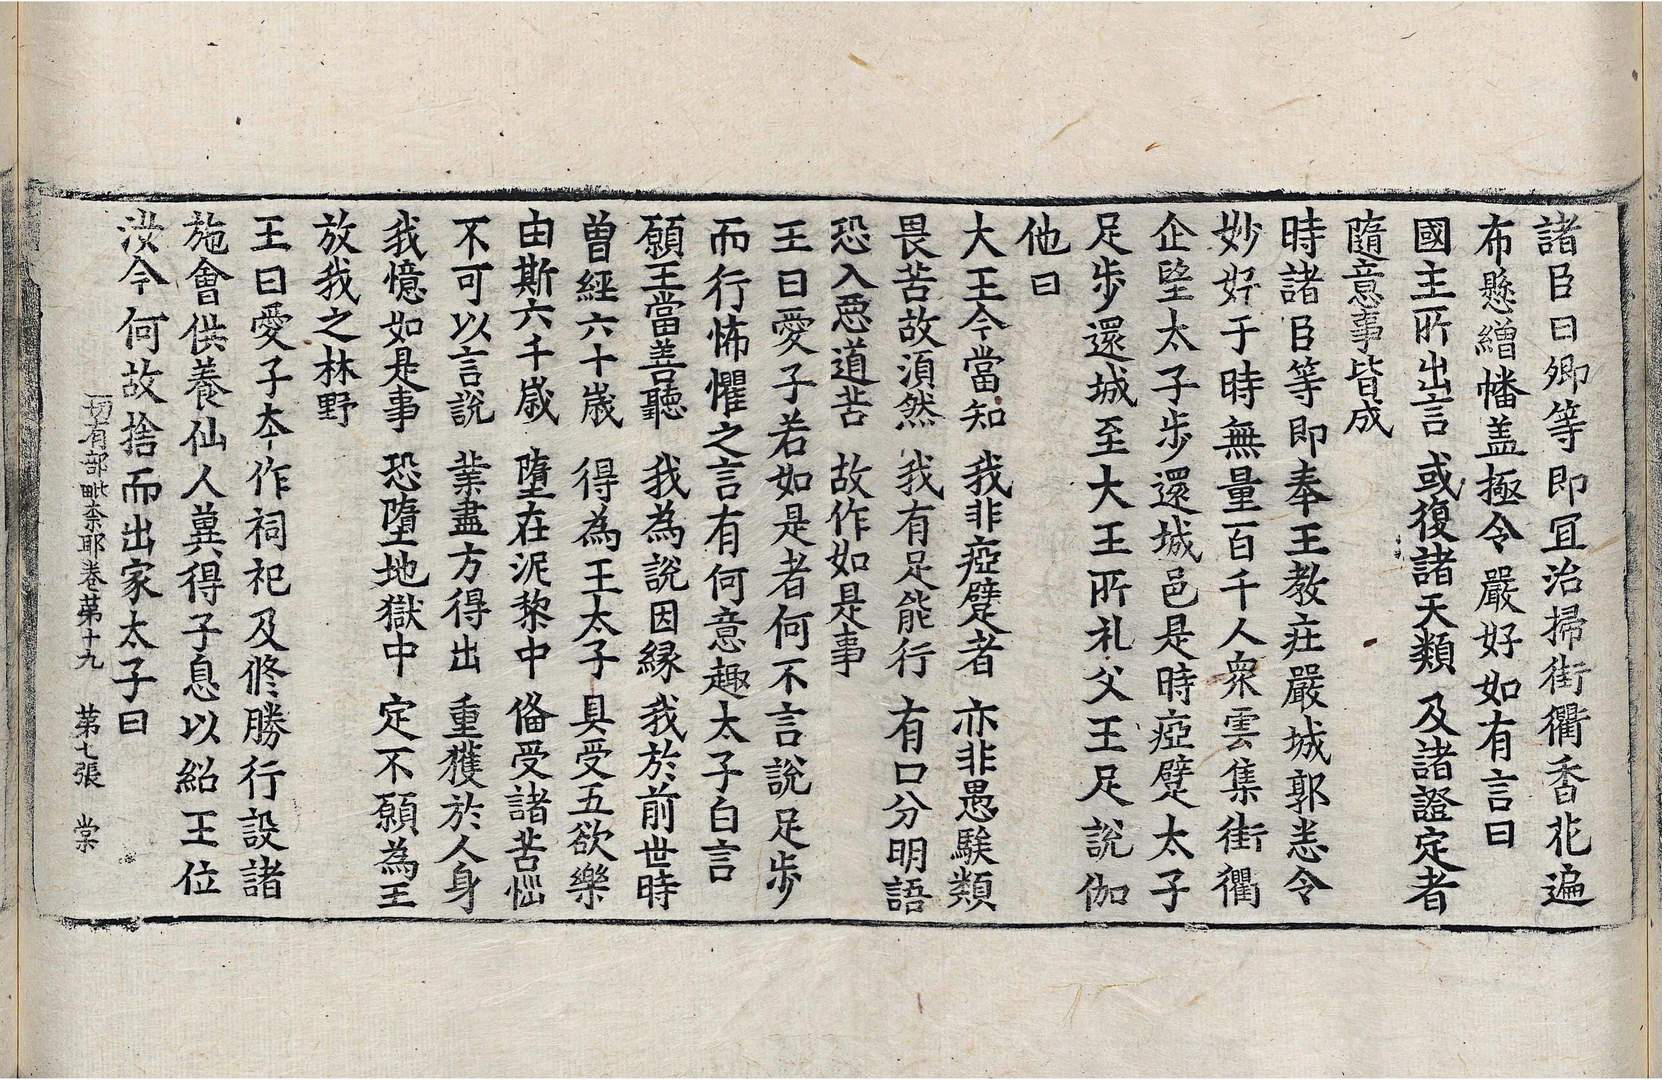 諸臣曰卿等即冝治掃街衢香花遍
布懸繒幡盖極令嚴好如有言曰
國主所出言 或復諸天類 及諸證定者
隨意事皆成
時諸臣等即奉王教庄嚴城郭悉令
妙好于時無量百千人衆雲集街衢
企望太子步還城邑是時瘂躄太子
足步還城至大王所礼父王足說伽
他曰
大王今當知 我非瘂躄者 亦非愚騃類
畏苦故湏然 我有足能行 有口分明語
恐入惡道苦 故作如是事
王曰愛子若如是者何不言說足步
而行怖懼之言有何意趣太子白言
願王當善聽 我為說因縁 我於前世時
曽經六十歲 得為王太子 具受五欲樂
由斯六千歲 墮在泥黎中 俻受諸苦惱
不可以言說 業盡方得出 重獲於人身
我憶如是事 恐墮地獄中 定不願為王
放我之林野
王曰愛子夲作祠祀及俢勝行設諸
施會供養仙人兾得子息以紹王位
汝今何故捨而出家太子曰
一切有部毗奈耶卷第十九 第七張 棠